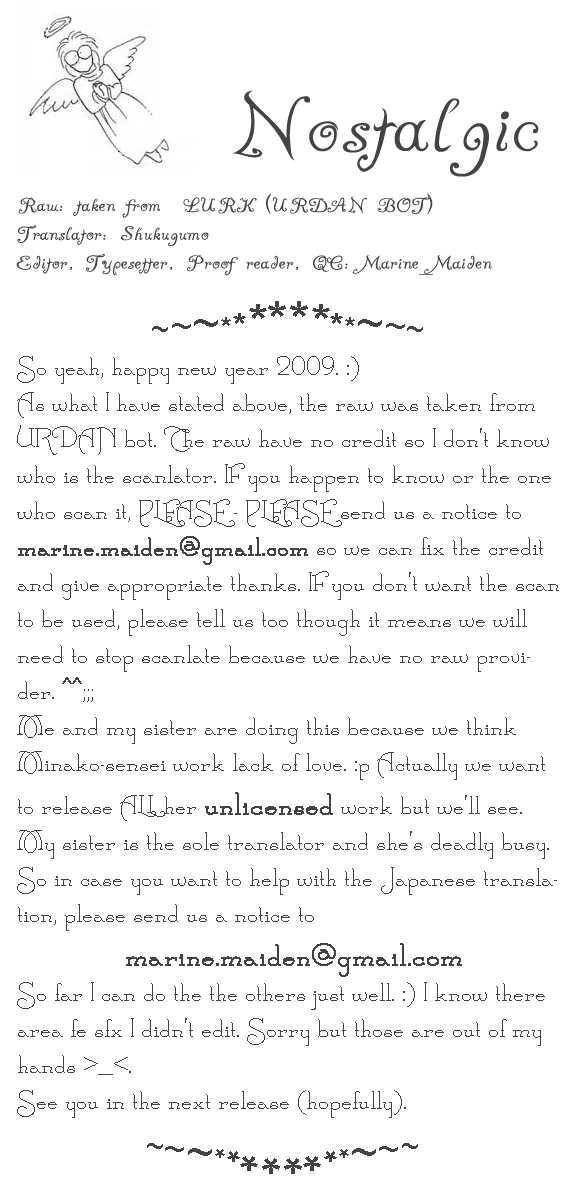 Nostalgic
Raw: taken from LURK (URDAN BOT)
Translator: Shukugumo
Editor, Typesetter, Proof reader, QC: Marine_Maiden
~~~********~~~
So yeah, happy new year 2009. :)
As what I have stated above, the raw was taken from
URDAN bot. The raw have no credit so I don't know
who is the scanlator. IF you happen to know or the one
who scan it, PLEASE- PLEASE send us a notice to
marine.maiden@gmail.com so we can fix the credit
and give appropriate thanks. IF you don't want the scan
to be used, please tell us too though it means we will
need to stop scanlate because we have no raw provi-
der. ^^;;;
Me and my sister are doing this because we think
Minako-sensei work lack of love. :p Actually we want
to release ALL her unlicensed work but we'll see.
My sister is the sole translator and she's deadly busy.
So in case you want to help with the Japanese transla-
tion, please send us a notice to
marine.maiden@gmail.com
So far I can do the the others just well. :) I know there
area fe sfx I didn't edit. Sorry but those are out of my
hands >_<.
See you in the next release (hopefully).
~~~********~~~